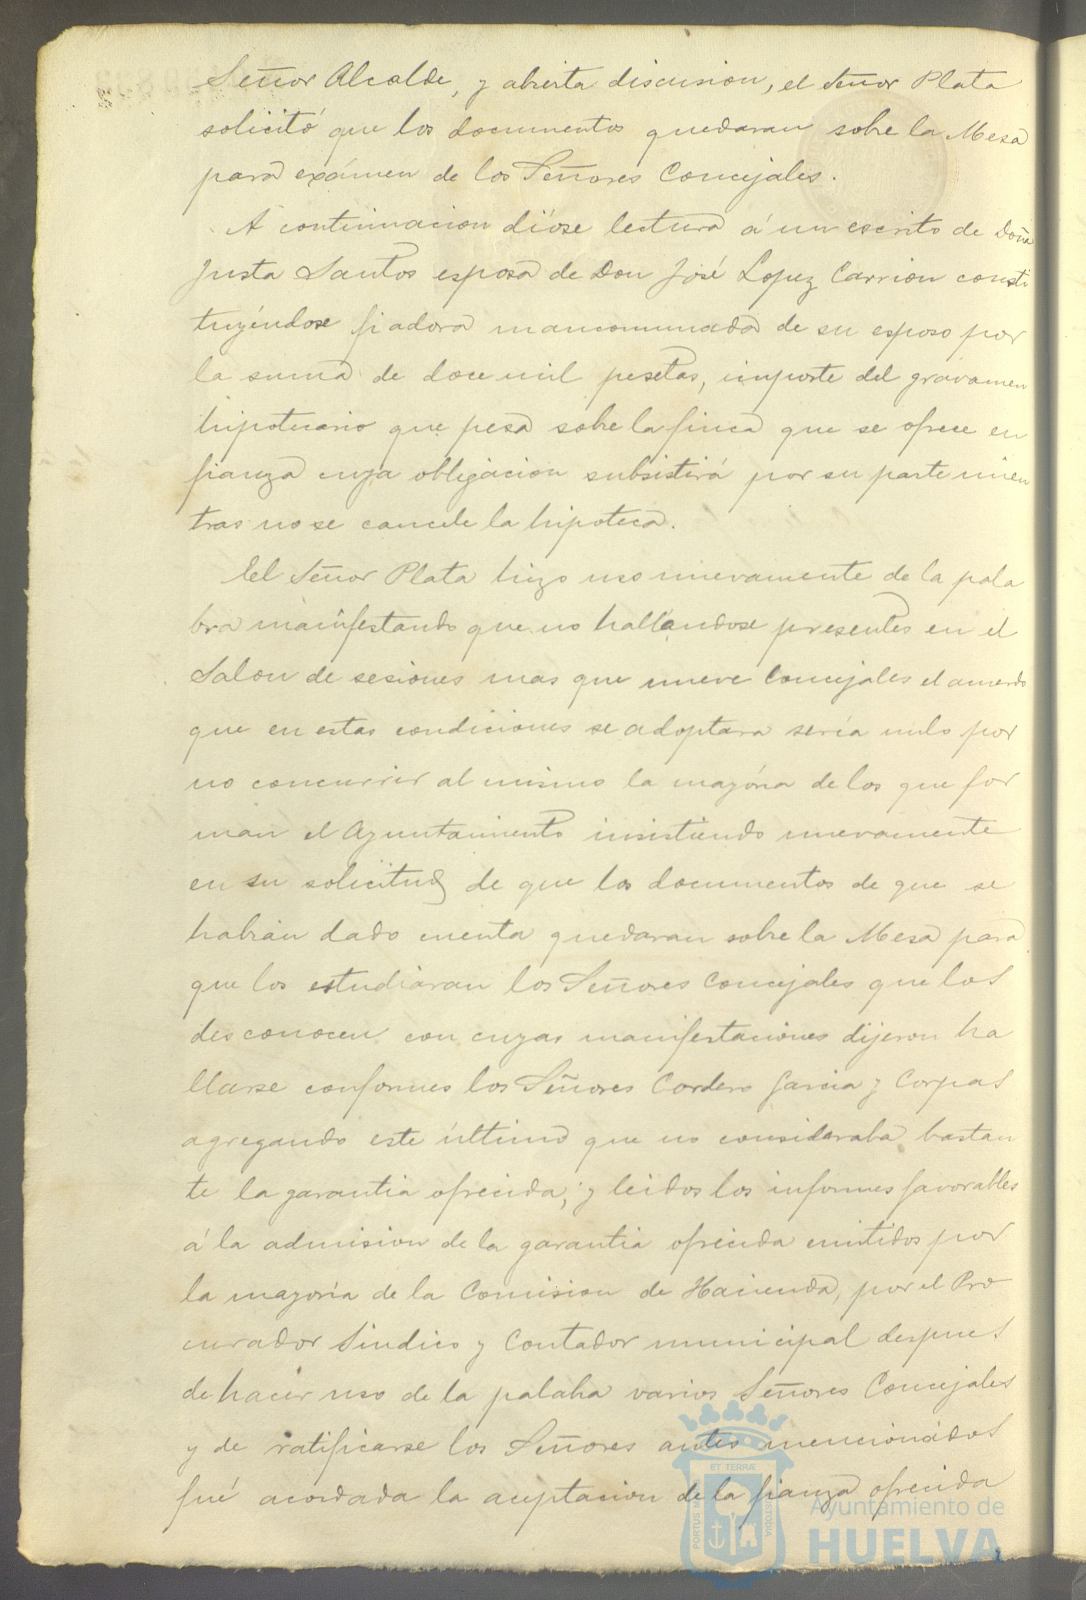 Señor Alcalde, y abierta discusion, el Señor Plata
solicitó que los documentos quedaran sobre la Mesa
para exámen de los Señores Concejales.
A continuacion dióse lectura á un escrito de Doña
Justa Santos esposa de Don José Lopez Carrion consti
tuyéndose fiadora mancomunada de su esposo por
la suma de doce mil pesetas, importe del gravamen
hipotecario que pesa sobre la finca que se ofrece en
fianza cuya obligacion subsistirá por su parte mien
tras no se cancele la hipoteca.
El Señor Plata hizo uso nuevamente de la pala
bra manifestando que no hallandose presentes en el
Salon de sesiones mas que nueve Concejales el acuerdo
que en estas condiciones se adoptara sería nulo por
no concurrir al mismo la mayoría de los que for
man el Ayuntamiento insistiendo nuevamente
en su solicitud de que los documentos de que se
habian dado cuenta quedaran sobre la Mesa para
que los estudiaran los Señores Concejales que los
desconocen con cuyas manifestaciones dijeron ha
llarse conformes los Señores Cordero Garcia y Corpas
agregando este último que no consideraba bastan
te la garantia ofrecida; y leidos los informes favorables
á la admision de la garantia ofrecida emitidos por
la mayoría de la Comision de Hacienda, por el Pro
curador Sindico y Contador municipal despues
de hacer uso de la palabra varios Señores Concejales
y de ratificarse los Señores antes mencionados
fué acordada la aceptacion de la fianza ofrecida
ET TERRÆ
PORTUS M
CUSTODIA
Ayuntamiento de
HUELVA